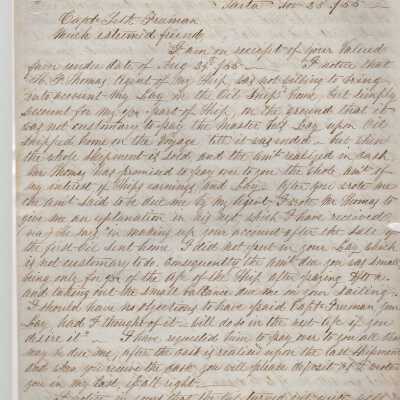 Paita Nov 25 /55
Capt. Freeman
Much esteemed friend
I am in receipt of your valued
favor under date of Aug 29th /55 — I notice that
Mr P. Thomas Agent of my Ship, was not willing to bring
into account my Lay in the Oil Ship'd home, but simply
account for my part of Ship, on the ground that it
was not customary to pay the Master his Lay upon Oil
shipped home on the voyage till it was ended — but when
the whole Shipment is sold, and the amt realized in cash
Mr Thomas has promised to pay over to you the whole amt of
my interest of Ships earnings and Lay. After you wrote me
the amt said to be due me by my Agent I wrote Mr Thomas to
give me an explanation in his next which I have received
he says "in making up your account after the sale of
the first oil sent home I did not put in your Lay which
is not customary to do, consequently the amt due you was small
being only for of the of the Ship after paying
and taking out the small balance due me on your sailing.
I should have no objections to have paid Capt Freeman your
Lay, had I thought of it — will do so in the next if you
desire it" — I have requested him to pay over to you all that
may be due me, after the cash is realized upon the last shipment
and when you receive the cash you will please deposit as I wrote
you in my last, if all right —
I notice in yours that the